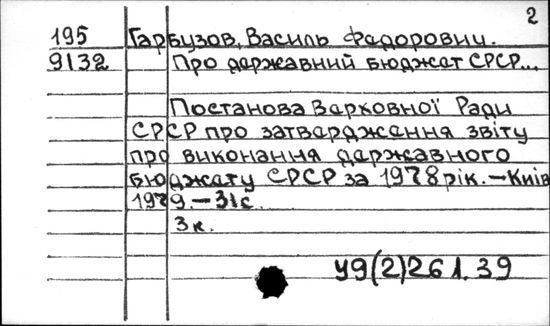 2
195 Гарбузов, Василь Федорович.
9132 Про державний бюджет СРСР...
Постанова Верховної Ради
СРСР про затвердження звіту
про виконання державного
бюджету СРСР за 1978 рік. — Київ
1979. — 31с.
3к.
У9(2)261.39